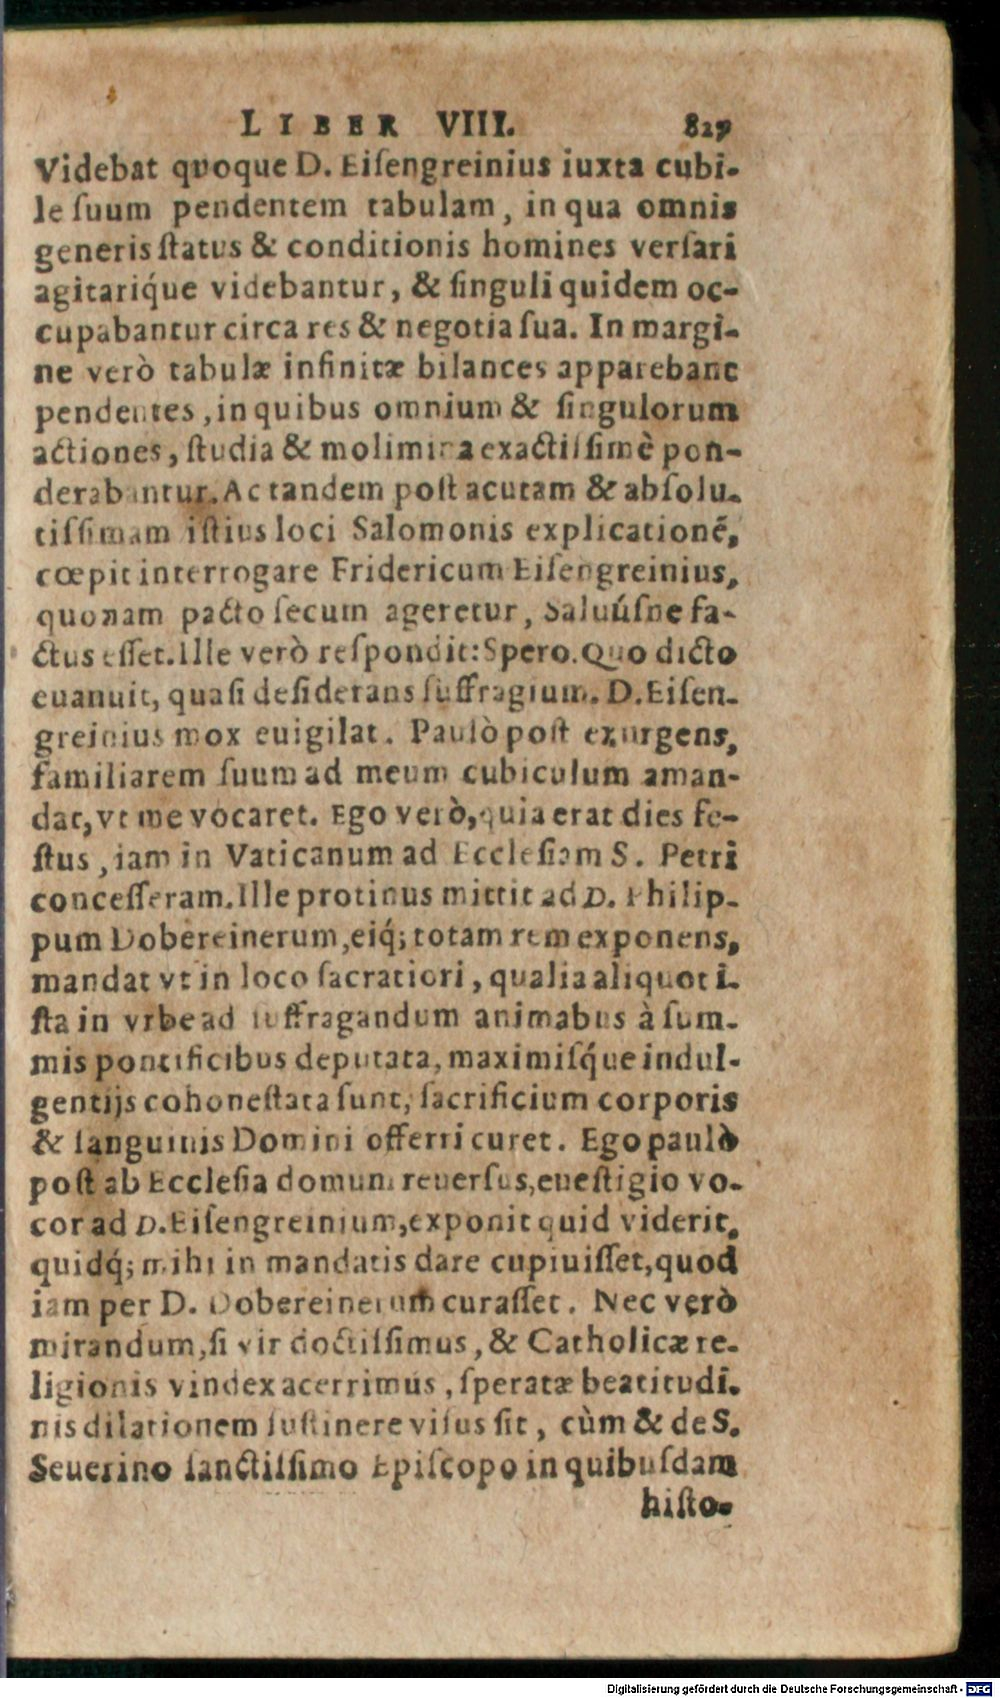 LIBER VIII. 827
Videbat quoque D. Eiſengreinius iuxta cubi-
le ſuum pendentem tabulam, in qua omnis
generis ſtatus & conditionis homines verſari
agitariq́ue videbantur, & ſinguli quidem oc-
cupabantur circa res & negotia ſua. In margi-
ne verò tabulæ infinitæ bilances apparebant
pendentes, in quibus omnium & ſingulorum
actiones, ſtudia & molimina exactiſſimè pon-
derabantur. Ac tandem poſt acutam & abſolu-
tiſſimam iſtius loci Salomonis explicationé,
cœpit interrogare Fridericum Eiſengreinius,
quonam pacto ſecum ageretur, Saluúſne fa-
ctus eſſet. Ille verò reſpondit: Spero. Quo dicto
euanuit, quaſi deſiderans ſuffragium. D. Eiſen-
greinius mox euigilat. Paulò poſt exurgens,
familiarem ſuum ad meum cubiculum aman-
dat, vt me vocaret. Ego verò, quia erat dies fe-
ſtus, iam in Vaticanum ad Eccleſiam S. Petri
conceſſeram. Ille protinus mittit ad D. Philip-
pum Dobereinerum, eiq́; totam rem exponens,
mandat vt in loco ſacratiori, qualia aliquot i-
ſta in vrbe ad ſuffragandum animabus à ſum-
mis pontificibus deputata, maximiſq́ue indul-
gentijs cohoneſtata ſunt, ſacrificium corporis
& ſanguinis Domini offerri curet. Ego paulò
poſt ab Eccleſia domum reuerſus, eueſtigio vo-
cor ad D. Eiſengreinium, exponit quid viderit,
quidq́; mihi in mandatis dare cupiuiſſet, quod
iam per D. Dobereinerum curaſſet. Nec verò
mirandum, ſi vir doctiſſimus, & Catholicæ re-
ligionis vindex acerrimus, ſperatæ beatitudi-
nis dilationem ſuſtinere viſus ſit, cùm & de S.
Seuerino ſanctiſſimo Epiſcopo in quibuſdam
hiſto-
Digitalisierung gefördert durch die Deutsche Forschungsgemeinschaft - DFG